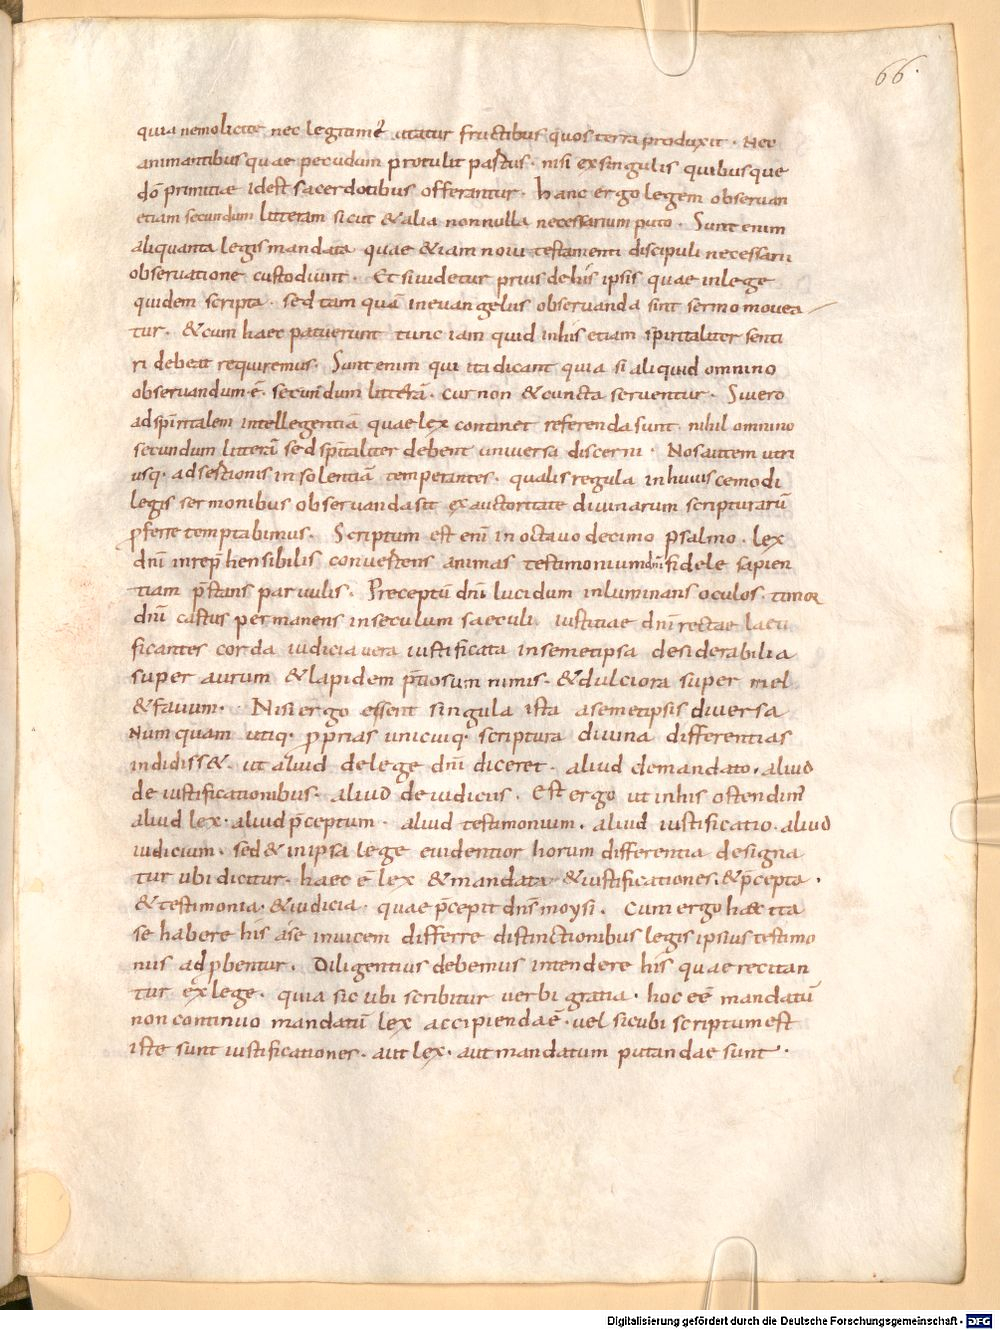 66.
quia nemo licite nec legitime utatur fructibus quos terra produxit · Nec
animantibus quae pecudum protulit pastus · nisi ex singulis quibusque
dō primitiae id est sacerdotibus offerantur · hanc ergo legem observari
etiam secundum litteram sicut & alia nonnulla necessarium puto · Sunt enim
aliquanta legis mandata quae &iam novi testamenti discipuli necessarii
observatione custodiunt · Et si videtur prius de his ipsis quae in lege
quidem scripta · sed tam quā in evangeliis observanda sint sermo movea
tur · & cum haec patuerint tunc iam quid in his etiam spiritaliter senti
ri debeat requiremus · Sunt enim qui ita dicant quia si aliquid omnino
observandum ē · secundum litterā · cur non & cuncta serventur · Si vero
ad spīritalem intellegentiā quae lex continet referenda sunt nihil omnino
secundum litterā sed spītaliter debent universa discerni · Nos autem utri
usq· adsertionis insolentiā temperantes · qualis regula in huiuscemodi
legis sermonibus observanda sit ex auctoritate divinarum scripturarū
pferre temptabimus · Scriptum est enī in octavo decimo psalmo · lex
dnī inrep̄hensibilis convertens animas testimonium dnī fidele sapien
tiam p̄stans parvulis · Preceptū dnī lucidum inluminans oculos · timor
dnī castus permanens in seculum saeculi iustitiae dnī rectae laeti
ficantes corda iudicia vera iustificata in semetipsa desiderabilia
super aurum & lapidem p̄tiosum nimis · & dulciora super mel
& favum · Nisi ergo essent singula ista a semetipsis diversa
Numquam utiq· pprias unicuiq· scriptura divina differentias
indidiss& · ut aliud de lege dnī diceret · aliud de mandato · aliud
de iustificationibus · aliud de iudiciis · Est ergo ut in his ostendim̄
aliud lex · aliud p̄ceptum · aliud testimonium · aliud iustificatio · aliud
iudicium · sed & in ipsa lege evidentior horum differentia designa
tur ubi dicitur · haec ē lex & mandata & iustificationes · & p̄cepta ·
& testimonia · & iudicia · quae p̄cepit dn̄s moysi · Cum ergo haec ita
se habere his a se invicem differre distinctionibus legis ipsius testimo
niis adpbentur · Diligentius debemus intendere his quae recitan
tur ex lege · quia sicubi scribitur verbi gratia · hoc eē mandatū
non continuo mandatū lex accipienda ē · vel sicubi scriptum est
iste sunt iustificationes · aut lex · aut mandatum putandae sunt ·
Digitalisierung gefördert durch die Deutsche Forschungsgemeinschaft - DFG